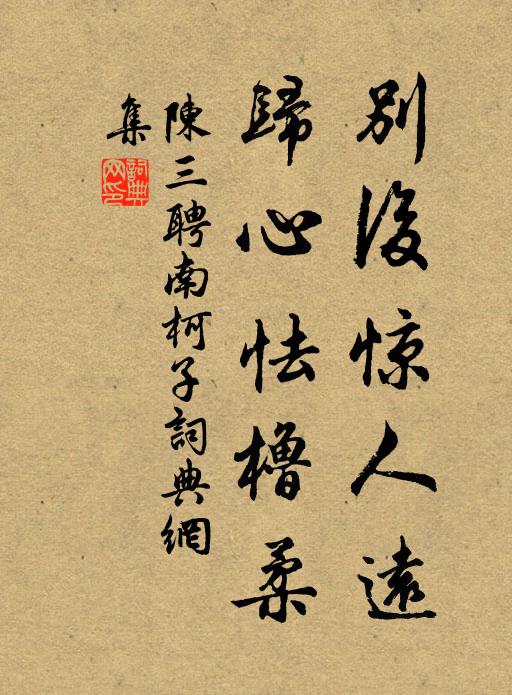 別後惊人遠
歸心怯櫓柔
陳三聘南柯子詞典網
集
詞典網印